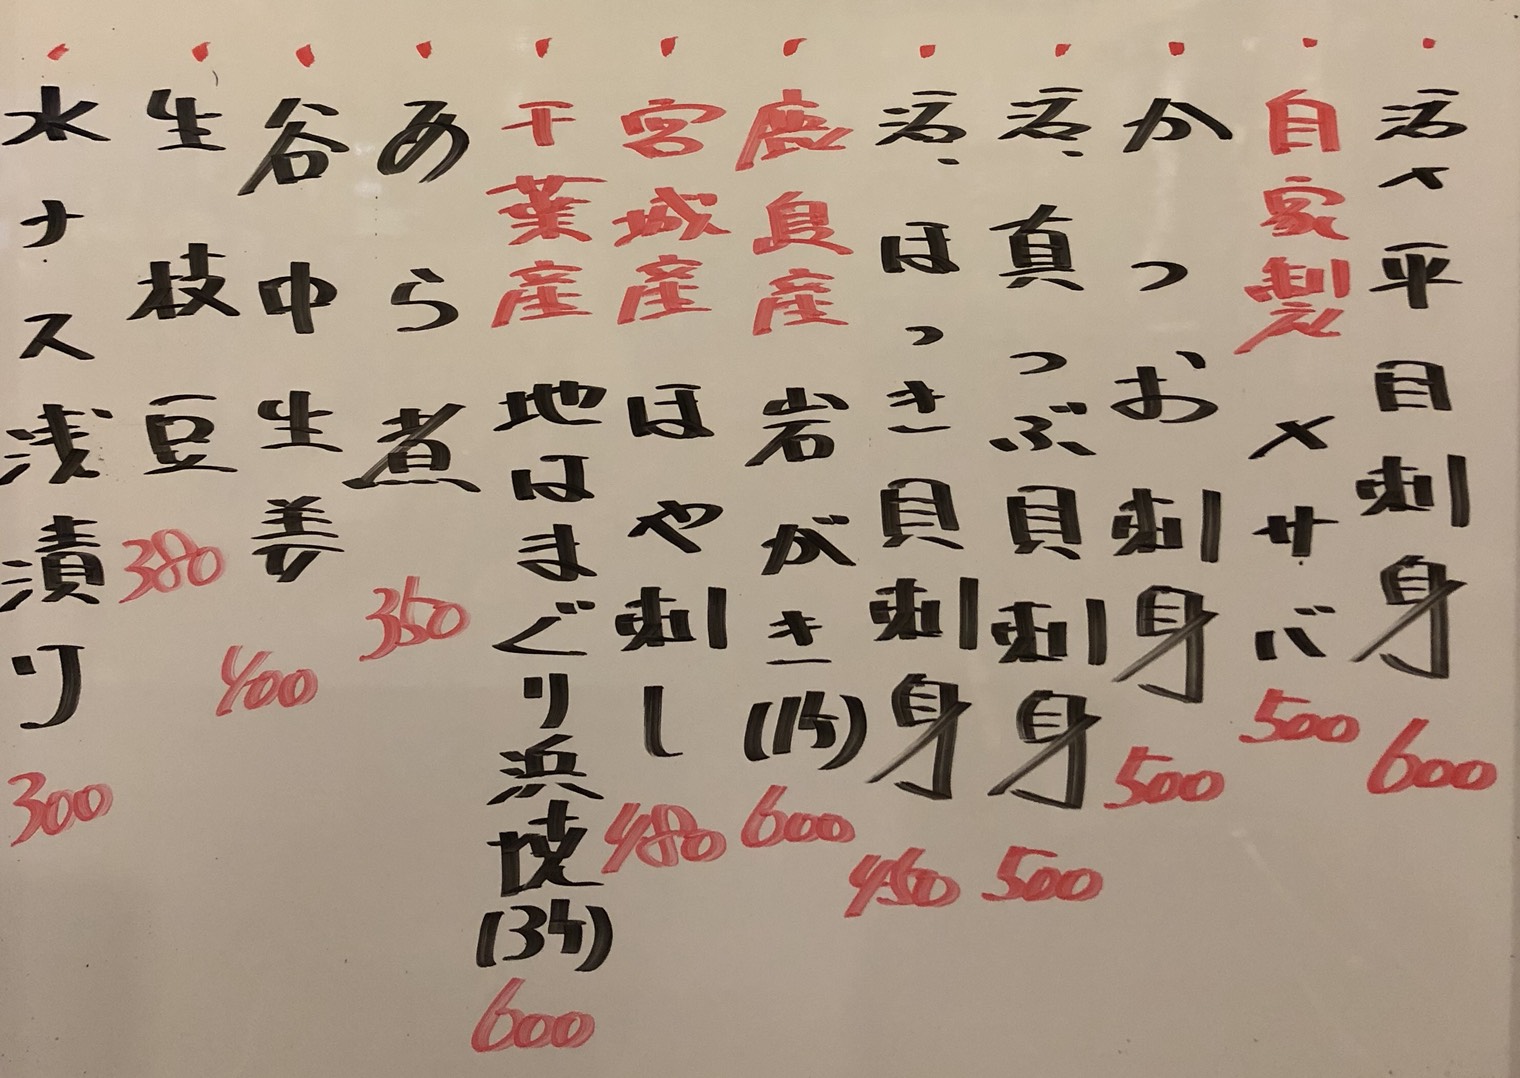 ・活〆平目刺身 600
・自家製 メサバ 500
・かつお刺身 500
・活、真つぶ貝刺身 500
・活、ほっき貝刺身 450
・鹿島産 岩がき(1ケ) 600
・宮城産 ほや刺し 480
・千葉産 地はまぐり浜焼(3ケ) 600
・あら煮 350
・谷中生姜 400
・生枝豆 380
・水ナス浅漬り 300